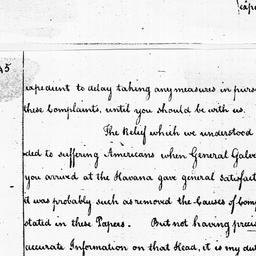 expe
45
expedient to delay taking any measures in purs
these Complaints, until you should be with us.
The Relief which we understood
ded to suffering Americans when General Galve
you arrived at the Havana gave general satisfact
it was probably such as removed the Causes of Com
stated in these Papers. But not having preci
accurate Information on that Head, it is my du